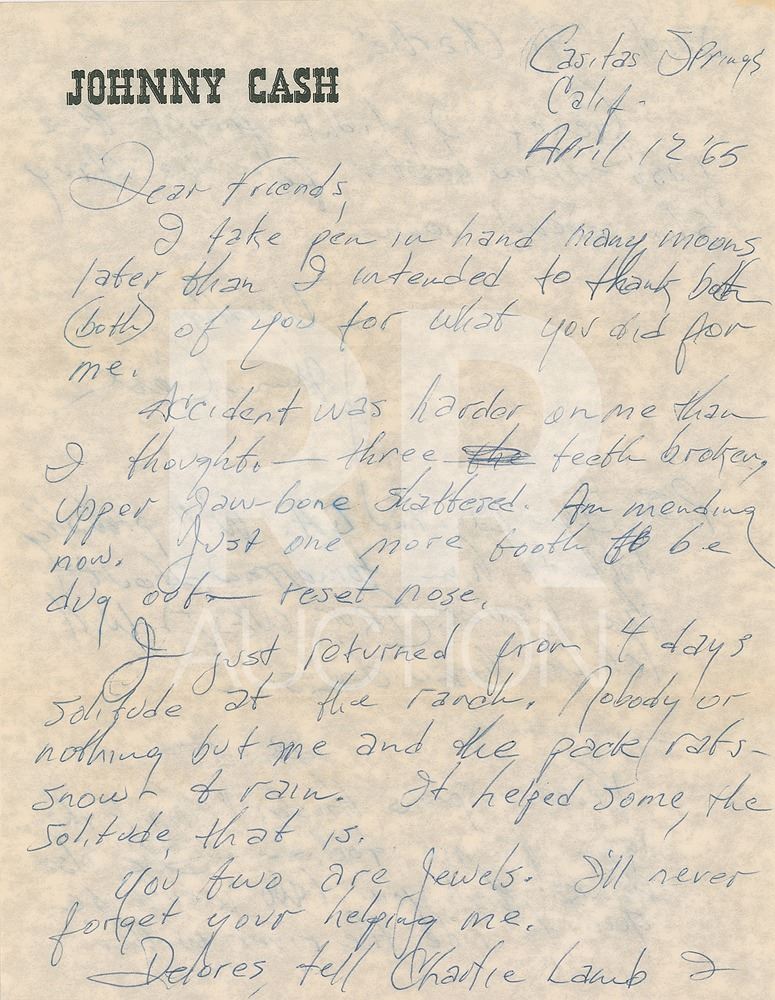 JOHNNY CASH
Casitas Springs
Calif.
April 12 '65
Dear Friends,
I take pen in hand many moons
later than I intended to thank both
(both) of you for what you did for
me.
Accident was harder on me than
I thought. — three the teeth broken,
upper jaw-bone shattered. Am mending
now. Just one more tooth to be
dug out — reset nose.
I just returned from 4 days
solitude at the ranch. Nobody or
nothing but me and the pack rats -
snow & rain. It helped some, the
solitude, that is.
You two are jewels. I'll never
forget your helping me.
Delores, tell Charlie Lamb I
RR
AUCTION